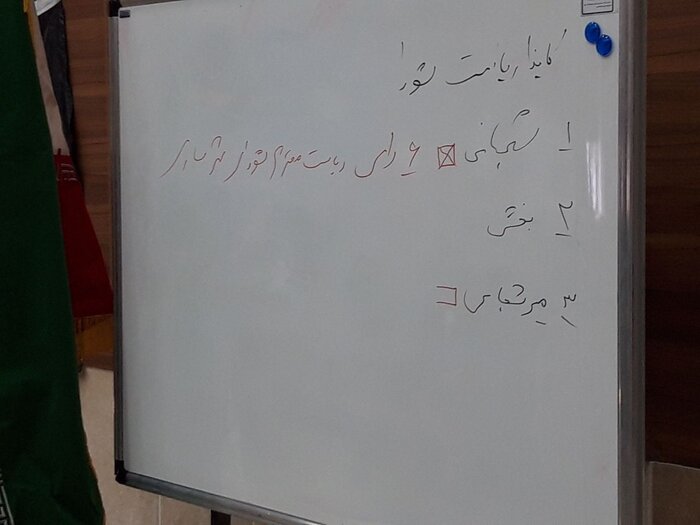 کاندیدا ریاست شورا
۱ شعبانی ۶ رای ریاست محترم شورای شهر ساری
۲ بخشی
۳ میرشعبانی